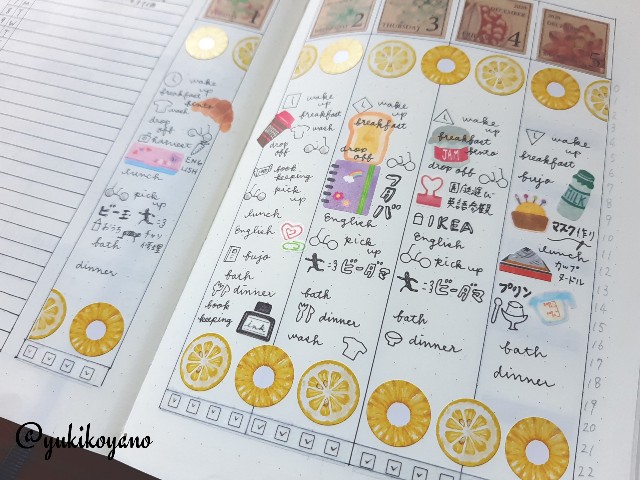 1
wake up
breakfast
bento
wash
drop off
ENGLISH
lunch
pick up
ビーズ
おうち
チャリ
修理
bath
dinner
2
wake up
breakfast
wash
drop off
book keeping
pick up
lunch
English
bujo
bath
dinner
book keeping
ink
THURSDAY
3
wake up
breakfast
drop off
フタバ
English
pick up
ビーダマ
bath
dinner
wash
DECEMBER
4
wake up
breakfast
bento
JAM
drop off
英語参観
IKEA
English
pick up
ビーダマ
bath
dinner
5
wake up
breakfast
bujo
MILK
マスク作り
lunch
カップ
ヌードル
プリン
bath
dinner
6
7
8
9
10
11
12
13
14
15
16
17
18
19
20
21
22
@yukikoyano